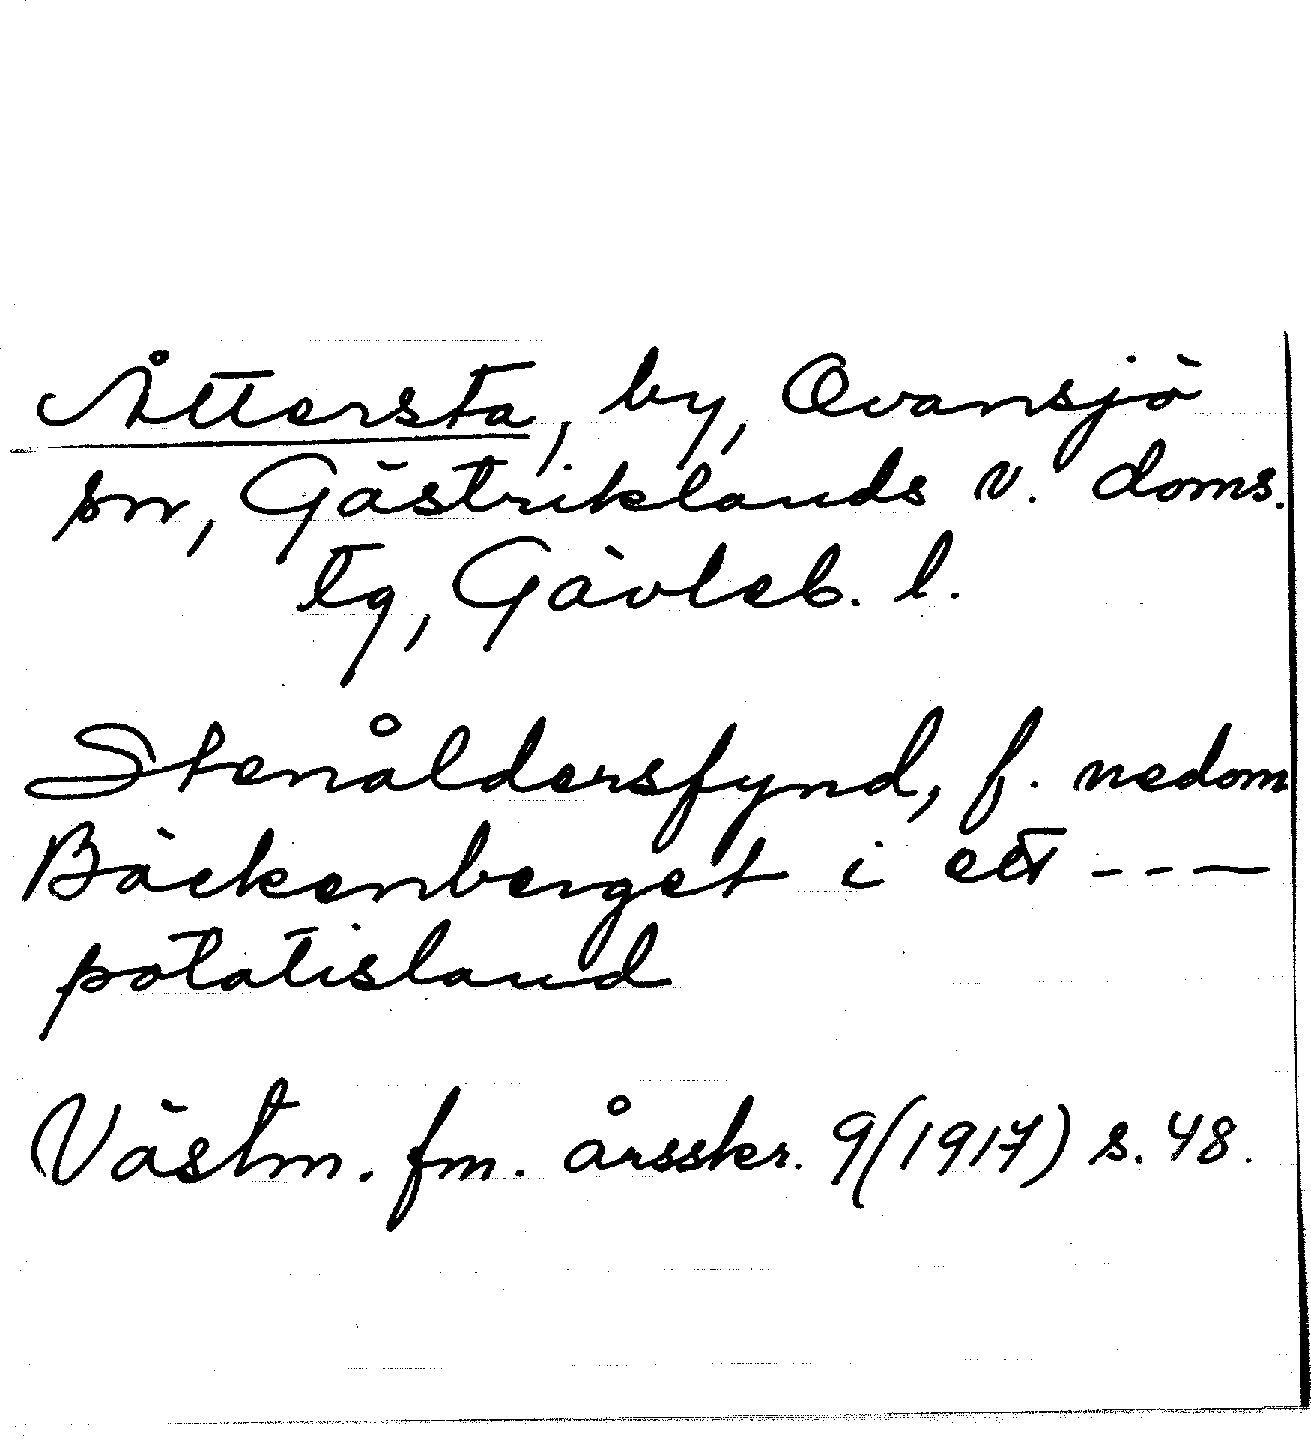 Åttersta, by, Ovansjö
sn, Gästriklands v. doms.
tg, Gävleb. l.
Stenåldersfynd, f. nedom
Bäckenberget i ett ---
potatisland
Västm. fm. årsskr. 9(1917) s. 48.